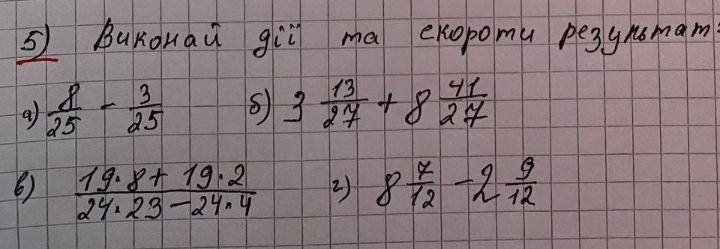 5) Виконай дії та скороти результат:
а) 8/25 - 3/25 б) 3 13/27 + 8 41/27
в) (19·8 + 19·2)/(24·23 - 24·4) г) 8 7/12 - 2 9/12